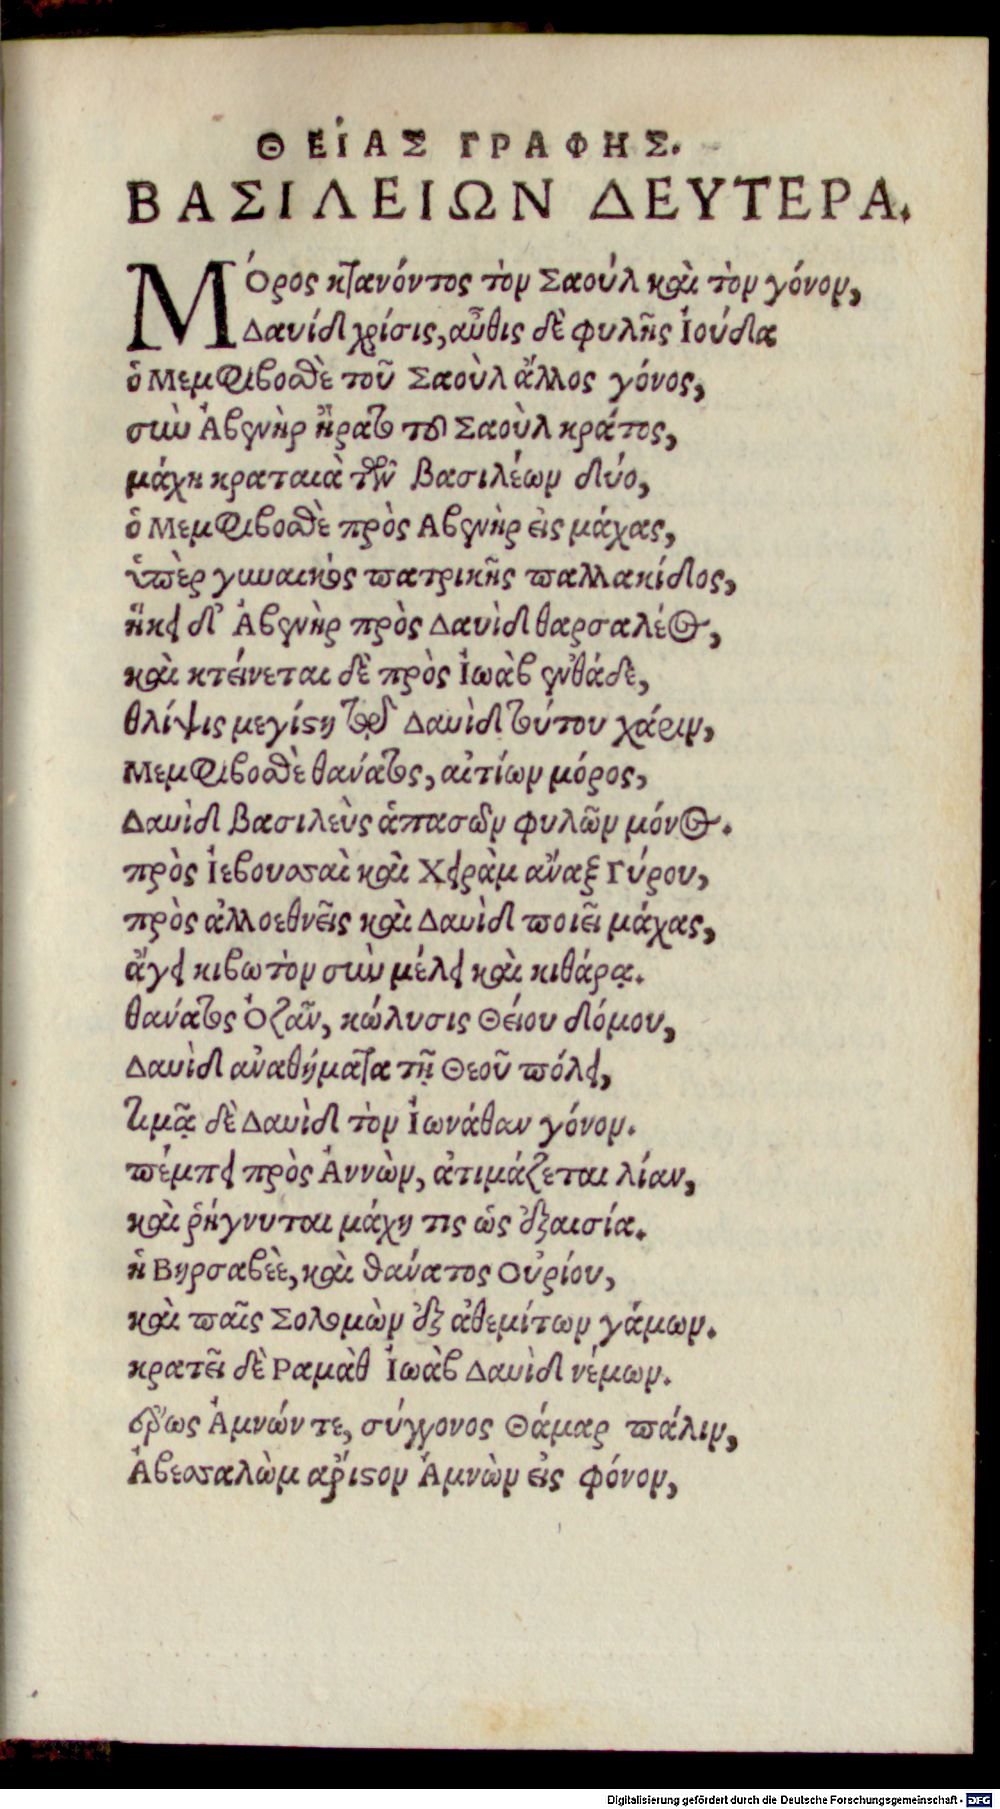 ΘΕΊΑΣ ΓΡΑΦΗΣ.
ΒΑΣΙΛΕΙΩΝ ΔΕΥΤΕΡΑ.
ΜΌρος κτανόντος τὸν Σαοὺλ καὶ τὸν γόνον,
Δαυίδ χρίσις, αὖθις δὲ φυλῆς Ἰούδα
ὁ Μεμφιβοσθὲ τοῦ Σαοὺλ ἄλλος γόνος,
σὺν Ἀβεννὴρ ἤρατο τοῦ Σαοὺλ κράτος,
μάχη κραταιὰ τῶν βασιλέων δύο,
ὁ Μεμφιβοσθὲ πρὸς Αβεννὴρ εἰς μάχας,
ὑπὲρ γυναικὸς πατρικῆς παλλακίδος,
ἥκει δ' Ἀβεννὴρ πρὸς Δαυὶδ θαρσαλέος,
καὶ κτείνεται δὲ πρὸς Ἰωὰβ ἐνθάδε,
θλίψις μεγίστη τῷ Δαυὶδ τούτου χάριν,
Μεμφιβοσθὲ θάνατος, αἰτίων μόρος,
Δαυὶδ βασιλεὺς ἁπασῶν φυλῶν μόνος.
πρὸς Ἰεβουσαὶ καὶ Χειρὰμ ἄναξ Γύρου,
πρὸς ἀλλοεθνεῖς καὶ Δαυὶδ ποιεῖ μάχας,
ἄγει κιβωτὸν σὺν μέλει καὶ κιθάρᾳ.
θάνατος Ὀζᾶν, κώλυσις Θείου δόμου,
Δαυὶδ ἀναθήματα τῇ Θεοῦ πόλει,
τιμᾷ δὲ Δαυὶδ τὸν Ἰωνάθαν γόνον.
πέμπει πρὸς Ἀννὼν, ἀτιμάζεται λίαν,
καὶ ῥήγνυται μάχη τις ὡς ἐξαισία.
ἡ Βηρσαβεὲ, καὶ θάνατος Οὐρίου,
καὶ παῖς Σολομὼν ἐξ ἀθεμίτων γάμων.
κρατεῖ δὲ Ραμὰθ Ἰωὰβ Δαυὶδ νέμων.
ἔρως Ἀμνών τε, σύγγονος Θάμαρ πάλιν,
Ἀβεσσαλὼμ ἄριστον Ἀμνὼν εἰς φόνον,
Digitalisierung gefördert durch die Deutsche Forschungsgemeinschaft - DFG